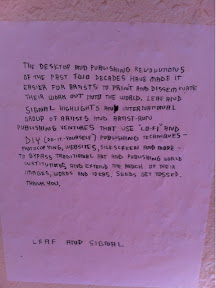 THE DESKTOP AND PUBLISHING REVOLUTIONS
OF THE PAST TWO DECADES HAVE MADE IT
EASIER FOR ARTISTS TO PRINT AND DISSEMINATE
THEIR WORK OUT INTO THE WORLD. LEAF AND
SIGNAL HIGHLIGHTS AN INTERNATIONAL
GROUP OF ARTISTS AND ARTIST-RUN
PUBLISHING VENTURES THAT USE LO-FI AND
DIY (DO-IT-YOURSELF) PUBLISHING TECHNIQUES -
PHOTOCOPYING, WEBSITES, SILKSCREEN AND MORE -
TO BYPASS TRADITIONAL ART AND PUBLISHING WORLD
INSTITUTIONS AND EXTEND THE REACH OF THEIR
IMAGES, WORDS AND IDEAS. SEEDS GET TOSSED.
THANK YOU.
LEAF AND SIGNAL